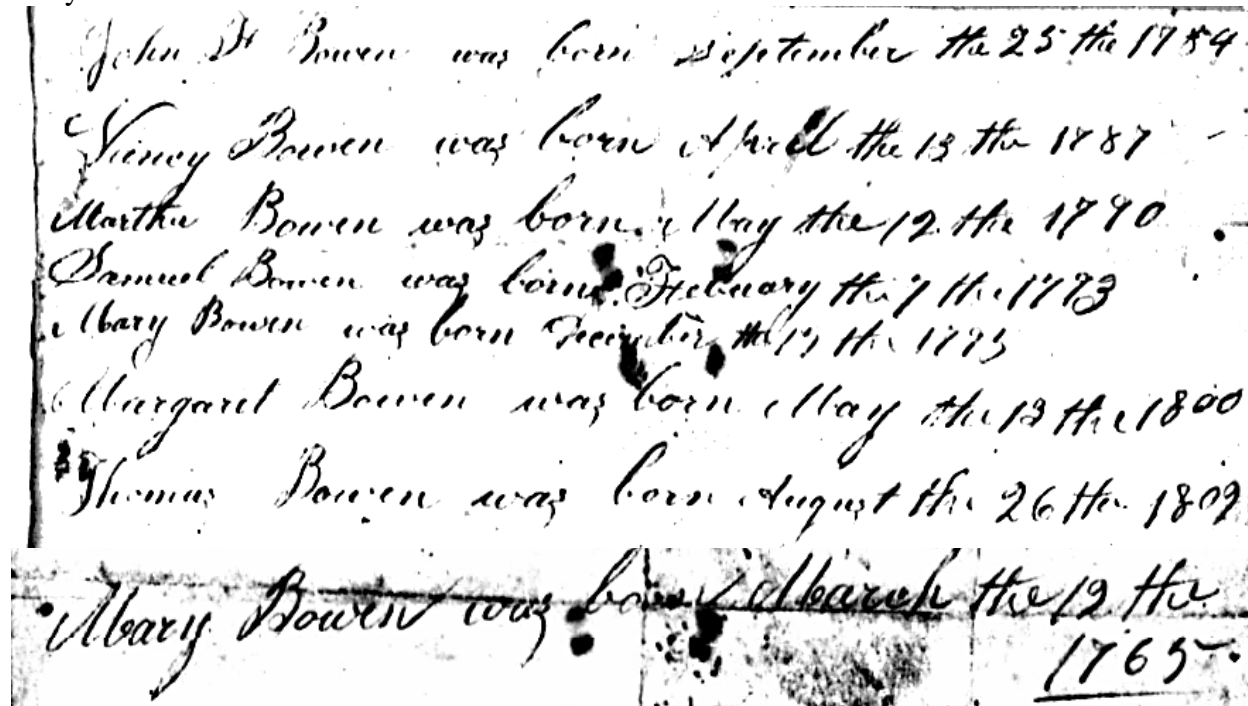 John H Bowen was born September the 25 the 1784
Niency Bowen was born April the 13 the 1787
Martha Bowen was born May the 12 the 1790
Samuel Bowen was born Febuary the 7 the 1793
Mary Bowen was born December the 17 the 1795
Margaret Bowen was born May the 13 the 1800
Thomas Bowen was born August the 26 the 1802
Mary Bowen was born March the 12 the
1765